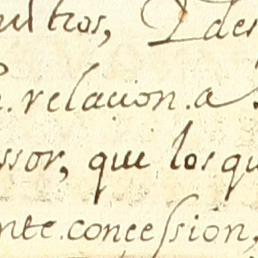 des
relacion a
ssor, que los qu
nte concession,